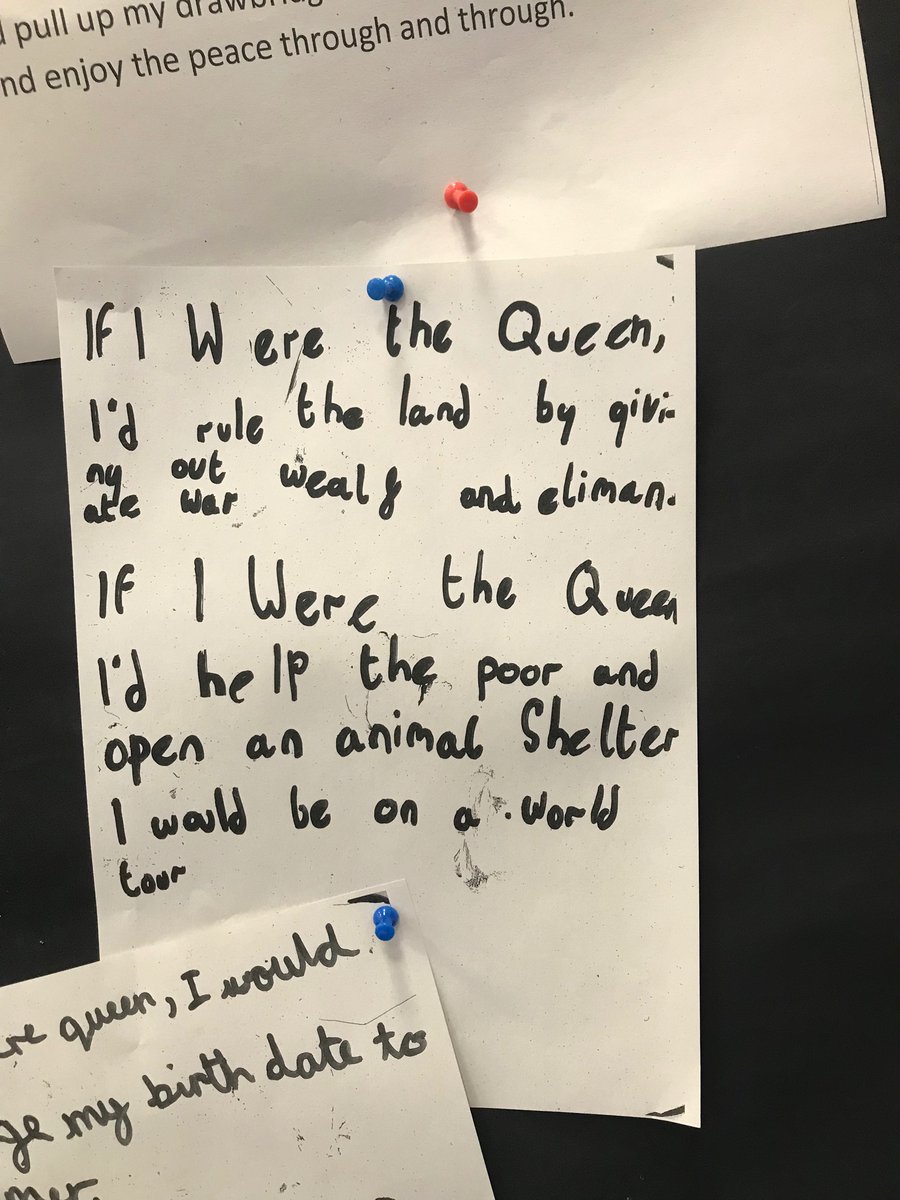 pull up my drawbridg
nd enjoy the peace through and through.
If I Were the Queen,
I'd rule the land by givi-
ng out wealf and eliman-
ate war
If I Were the Queen
I'd help the poor and
open an animal Shelter
I would be on a world
tour
re queen, I would
ge my birth date to
mer.